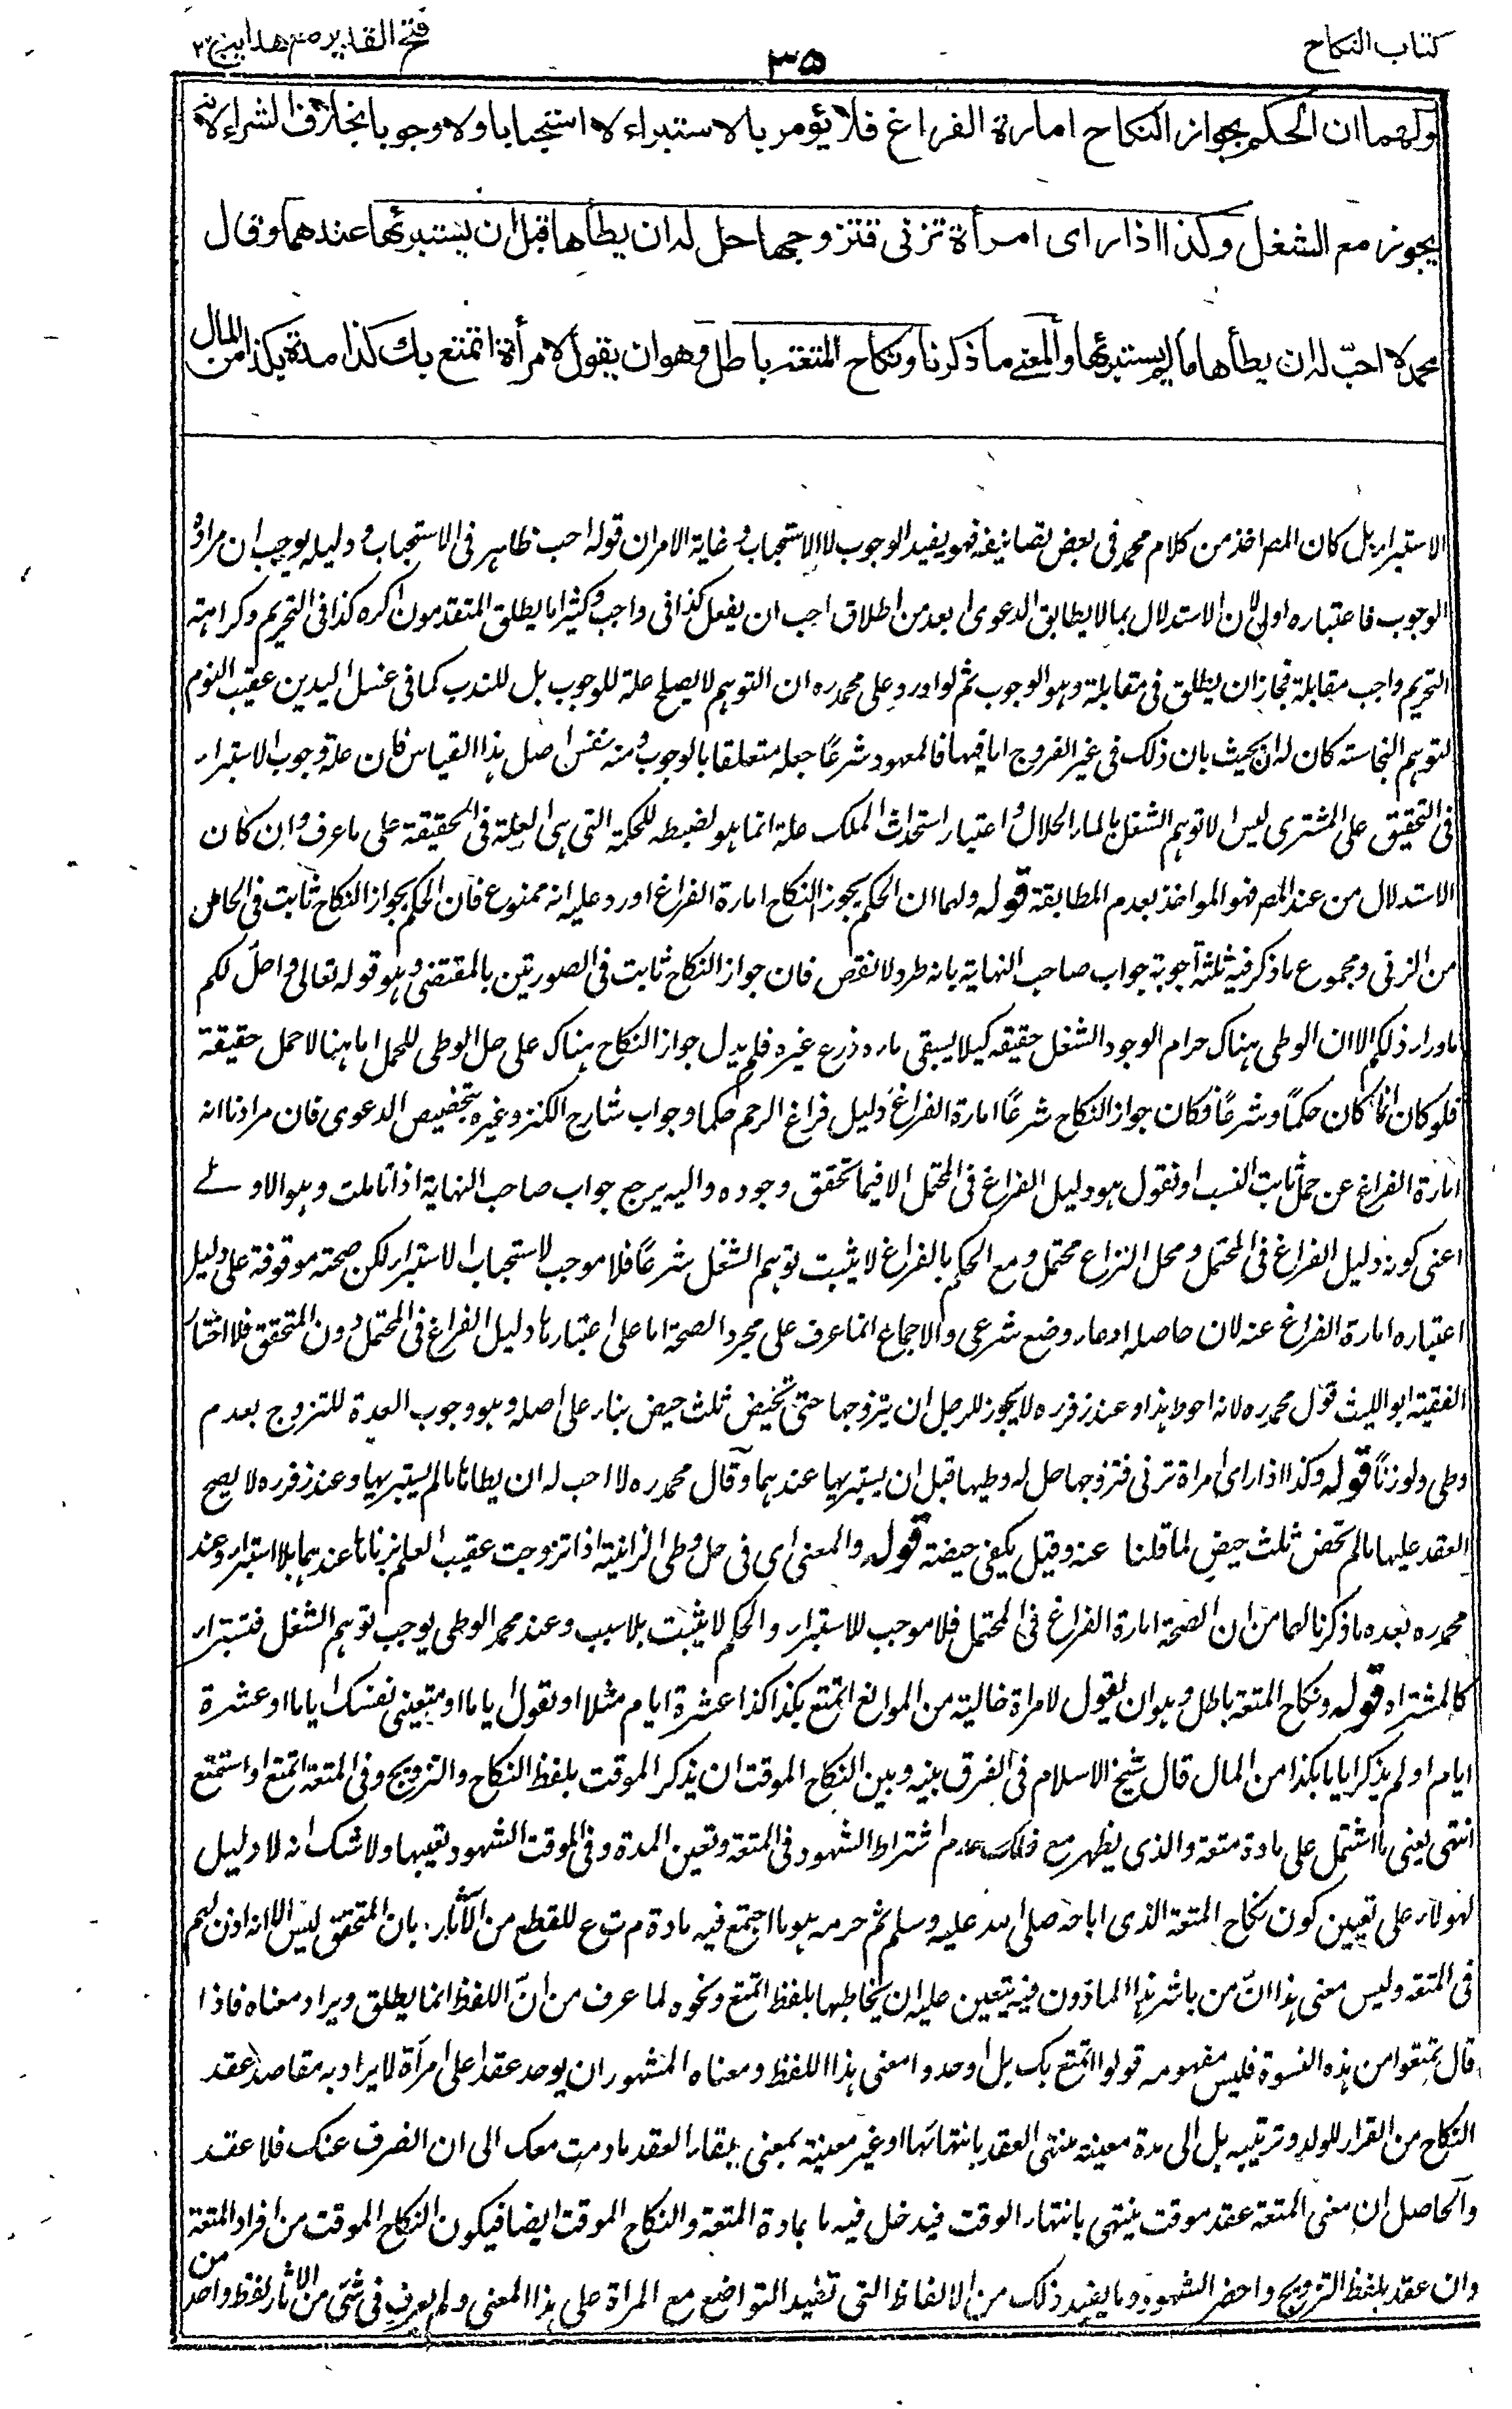 كتاب النكاح
٣٥
فتح القدير مع هداية ج ٢
ولهما ان الحكم بجواز النكاح امارة الفراغ فلا يؤمر بالاستبراء لا استحبابا ولا وجوبا بخلاف الشراء لانه
يجوز مع الشغل وكذا اذا راى امرأة تزنى فتزوجها حل له ان يطأها قبل ان يستبرئها عندهما وقال
محمد لا احبّ له ان يطأها مالم يستبرئها والمعنى ما ذكرنا ونكاح المتعة باطل وهو ان يقول لامرأة اتمتع بك كذا مدة بكذا من المال
الاستبراء بل كان المص اخذ من كلام محمد فى بعض تصانيفه فهو يفيد الوجوب لا الاستحباب وغاية الامر ان قوله احب ظاهر فى الاستحباب ودليله يوجب ان مراده
الوجوب فاعتباره اولى لان الاستدلال بما لا يطابق الدعوى ابعد من اطلاق احب ان يفعل كذا فى واجب وكثيرا ما يطلق المتقدمون اكره كذا فى التحريم وكراهته
التحريم واجب مقابلة فجاز ان يطلق فى مقابلة وهو الوجوب ثم لو اورد على محمد ره ان التوهم لا يصلح علة للوجوب بل للندب كما فى غسل اليدين عقيب النوم
لتوهم النجاسة كان له ان يجيب بان ذلك فى غير الفروج اما فيها فالمعهود شرعًا جعله متعلقا بالوجوب ومنه نفس اصل هذا القياس فان علة وجوب الاستبراء
فى التحقيق على المشترى ليس الا توهم الشغل بالماء الحلال واعتبار استحداث الملك علة انما هو لضبطه للحكمة التى هى العلة فى الحقيقة على ما عرف وان كان
الاستدلال من عند المص فهو المواخذ بعدم المطابقة قوله ولهما ان الحكم بجواز النكاح امارة الفراغ اورد عليه انه ممنوع فان الحكم بجواز النكاح ثابت فى الحامل
من الزنى ومجموع ما ذكر فيه ثلثة اجوبة جواب صاحب النهاية بانه طرد لا نقض فان جواز النكاح ثابت فى الصورتين بالمقتضى وهو قوله تعالى واحل لكم
ما وراء ذلكم الا ان الوطى هناك حرام الوجود الشغل حقيقه كيلا يسقى ماءه زرع غيره فلم يدل جواز النكاح هناك على حل الوطى للحمل اما هنا لا حمل حقيقة
فلو كان انما كان حكمًا وشرعًا فكان جواز النكاح شرعًا امارة الفراغ دليل فراغ الرحم حكما وجواب شارح الكنز وغيره بتخصيص الدعوى فان مرادنا انه
امارة الفراغ عن حمل ثابت النسب او نقول هو دليل الفراغ فى المحتمل الا فيما تحقق وجوده واليه يرجع جواب صاحب النهاية اذا تاملت وهو الاولے
اعنى كونه دليل الفراغ فى المحتمل ومحل النزاع محتمل ومع الحكم بالفراغ لا يثبت توهم الشغل شرعًا فلا موجب لاستحباب الاستبراء لكن صحته موقوفة على دليل
اعتباره امارة الفراغ عنه لان حاصله ادعاء وضع شرعى والاجماع انما عرف على مجرد الصحة اما على اعتبارها دليل الفراغ فى المحتمل دون المتحقق فلا اختار
الفقيه ابو الليث قول محمد ره لانه احوط هذا وعند زفر ره لا يجوز للرجل ان يتزوجها حتى تحيض ثلث حيض بناء على اصله وهو وجوب العدة للتزوج بعدم
وطى ولو زنًا قوله وكذا اذا راى امراة تزنى فتزوجها حل له وطيها قبل ان يستبريها عندهما وقال محمد ره لا احب له ان يطاها مالم يستبريها وعند زفر ره لا يصح
العقد عليها مالم تحض ثلث حيض لما قلنا عنه وقيل يكفى حيضة قوله والمعنى اى فى حل وطى الزانية اذا تزوجت عقيب العلم بزناها عندهما بلا استبراء وعند
محمد ره بعده ما ذكرنا لهما من ان الصحة امارة الفراغ فى المحتمل فلا موجب للاستبراء والحكم لا يثبت بلا سبب وعند محمد الوطى يوجب توهم الشغل فتستبراء
كالمشتراه قوله ونكاح المتعة باطل وهو ان يقول لامراة خالية من الموانع اتمتع بكذا كذا عشرة ايام مثلا او يقول اياما او متعينى نفسك اياما او عشرة
ايام او لم يذكر اياما بكذا من المال قال شيخ الاسلام فى الفرق بينه وبين النكاح الموقت ان يذكر الموقت بلفظ النكاح والتزويج وفى المتعة اتمتع او استمتع
انتهى يعنى ما اشتمل على مادة متعة والذى يظهر مع ذلك عدم اشتراط الشهود فى المتعة وتعين المدة وفى الموقت الشهود تعيينها ولا شك انه لا دليل
لهولاء على تعيين كون نكاح المتعة الذى اباحه صلى الله عليه وسلم ثم حرمه هو ما اجتمع فيه مادة م ت ع للقطع من الآثار بان المتحقق ليس الا انه اذن لهم
فى المتعة وليس معنى هذا انّ من باشر هذا الماذون فيه يتعين عليه ان يخاطبها بلفظ اتمتع ونحوه لما عرف من انّ اللفظ انما يطلق ويراد معناه فاذا
قال تمتعوا من هذه النسوة فليس مفهومه قولوا اتمتع بك بل اوجدوا معنى هذا اللفظ ومعناه المشهور ان يوجد عقدا على امرأة لا يراد به مقاصد عقد
النكاح من القرار للولد وتربيته بل الى مدة معينة ينتهى العقد بانتهائها او غير معينة بمعنى بقاء العقد ما دمت معك الى ان انصرف عنك فلا عقد
والحاصل ان معنى المتعة عقد موقت ينتهى بانتهاء الوقت فيدخل فيه ما بمادة المتعة والنكاح الموقت ايضا فيكون النكاح الموقت من افراد المتعة
وان عقد بلفظ التزويج واحضر الشهود وما يفيد ذلك من الالفاظ التى تفيد التواضع مع المراة على هذا المعنى ولم يعرف فى شئ من الاثار لفظ واحد من